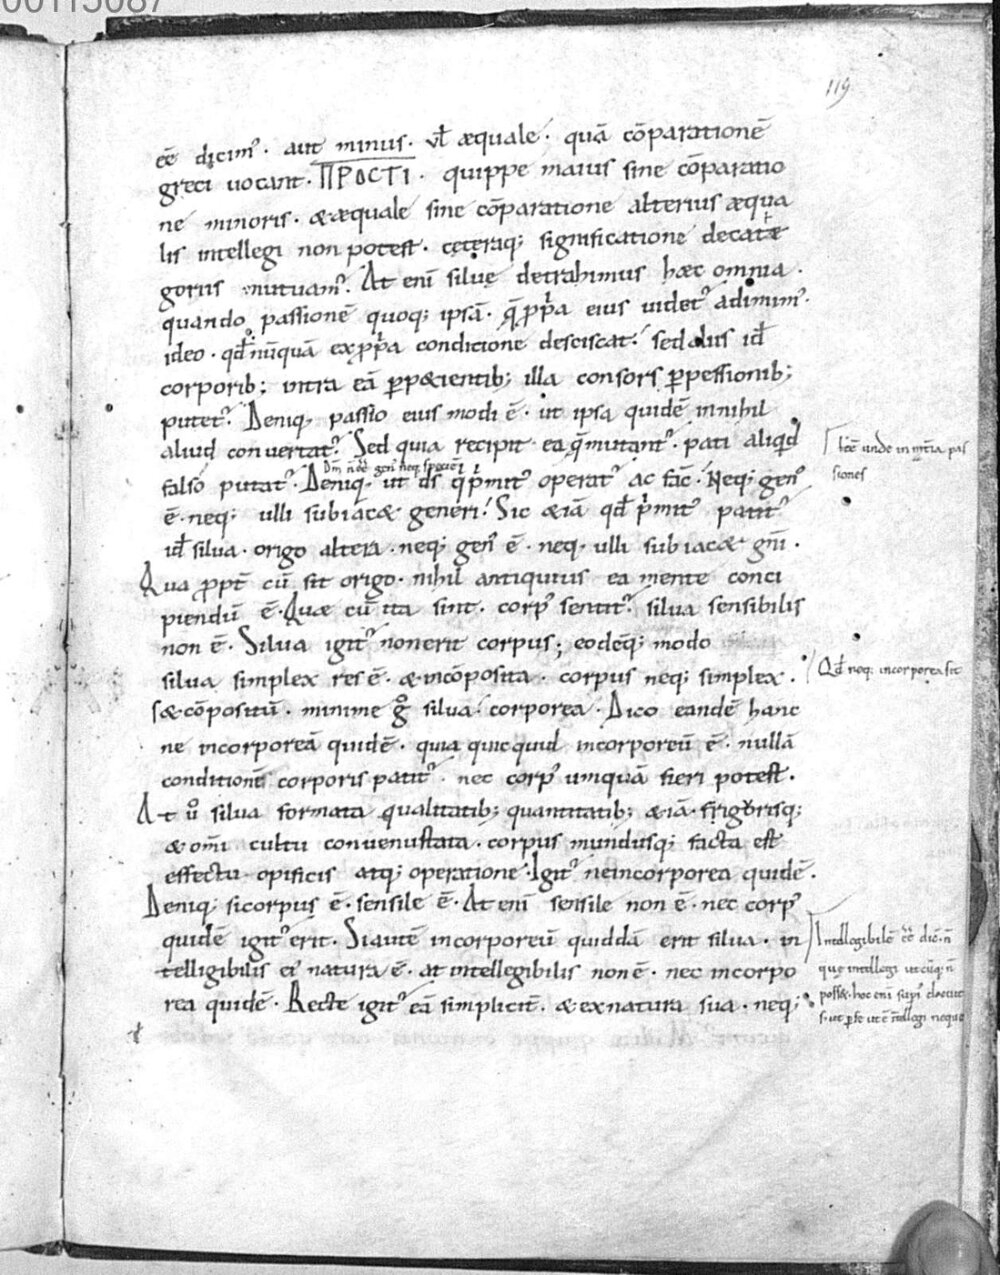 00115087
119
eē dicim᾽. aut minus. vł æquale. quā cōparationē
greci uocant. ΠΡΟϹΤΙ. quippe maius sine cōparatio
ne minoris. &æquale sine cōparatione alterius æqua
lis intellegi non potest. cęteraq; significatione decatæ
goriis mutuam᾽. At eni silvę detrahimus hæc omnia.
quando passionē quoq; ipsā. q̄ ꝓpa eius uidet᾽ adimim᾽.
ideo. qd̄ nūquā exꝓpa condicione desciscat. sed aliis id̄
corporib; intra eā ꝑp&ientib; illa consors ꝑpessionib;
putet᾽. Deniq, passio eius modi ē. ut ipsa quidē innihil
aliud convertat᾽. Sed quia recipit ea q̄ mutant᾽. pati aliqd
falso putat᾽. Deniq. ut ds̄ q pmit᾽ operat᾽ ac fac̄. Neq; gen᾽
ē. neq; ulli subiac& generi. Sic &iā qd̄ pmit᾽ patit᾽
id̄ silua. origo altera. neq; gen᾽ ē. neq. ulli subiac& gn̄i.
Qua ꝓpt̄ cū sit origo. nihil antiquius ea mente conci
piendū ē. Quæ cū ita sint. corp᾽ sentit᾽. silua sensibilis
non ē. Silua igit᾽ nonerit corpus; eodēq; modo
silua simplex res ē. &incōposita. corpus neq; simplex.
s&cōpositū. minime g° silua corporea. Dico eandē hanc
ne incorporeā quidē. quia quicquid incorporeū ē. nullā
conditionē corporis patit᾽. nec corp᾽ umquā fieri potest.
At u° silua formata qualitatib; quantitatib; &iā frigorisq;
& om̄i cultu convenustata. corpus mundusq; facta est
effectu opificis atq; operatione. Igit᾽ neincorporea quidē.
Deniq; sicorpus ē. sensile ē. At eni sensile non ē. nec corp᾽
quidē igit᾽ erit. Siautē incorporeū quiddā erit silua. in
telligibilis ei᾽ natura ē. at intellegibilis non ē. nec incorpo
rea quidē. Recte igit᾽ eā simplicit̄. & exnatura sua. neq;
hēē unde in mt̄ia pas
siones
Qd̄ neq; incorporea sit
Intellegibilē eē dic̄. n̄
que intellegi utcūq; n̄
poss&. hoc eni sup᾽ docuit